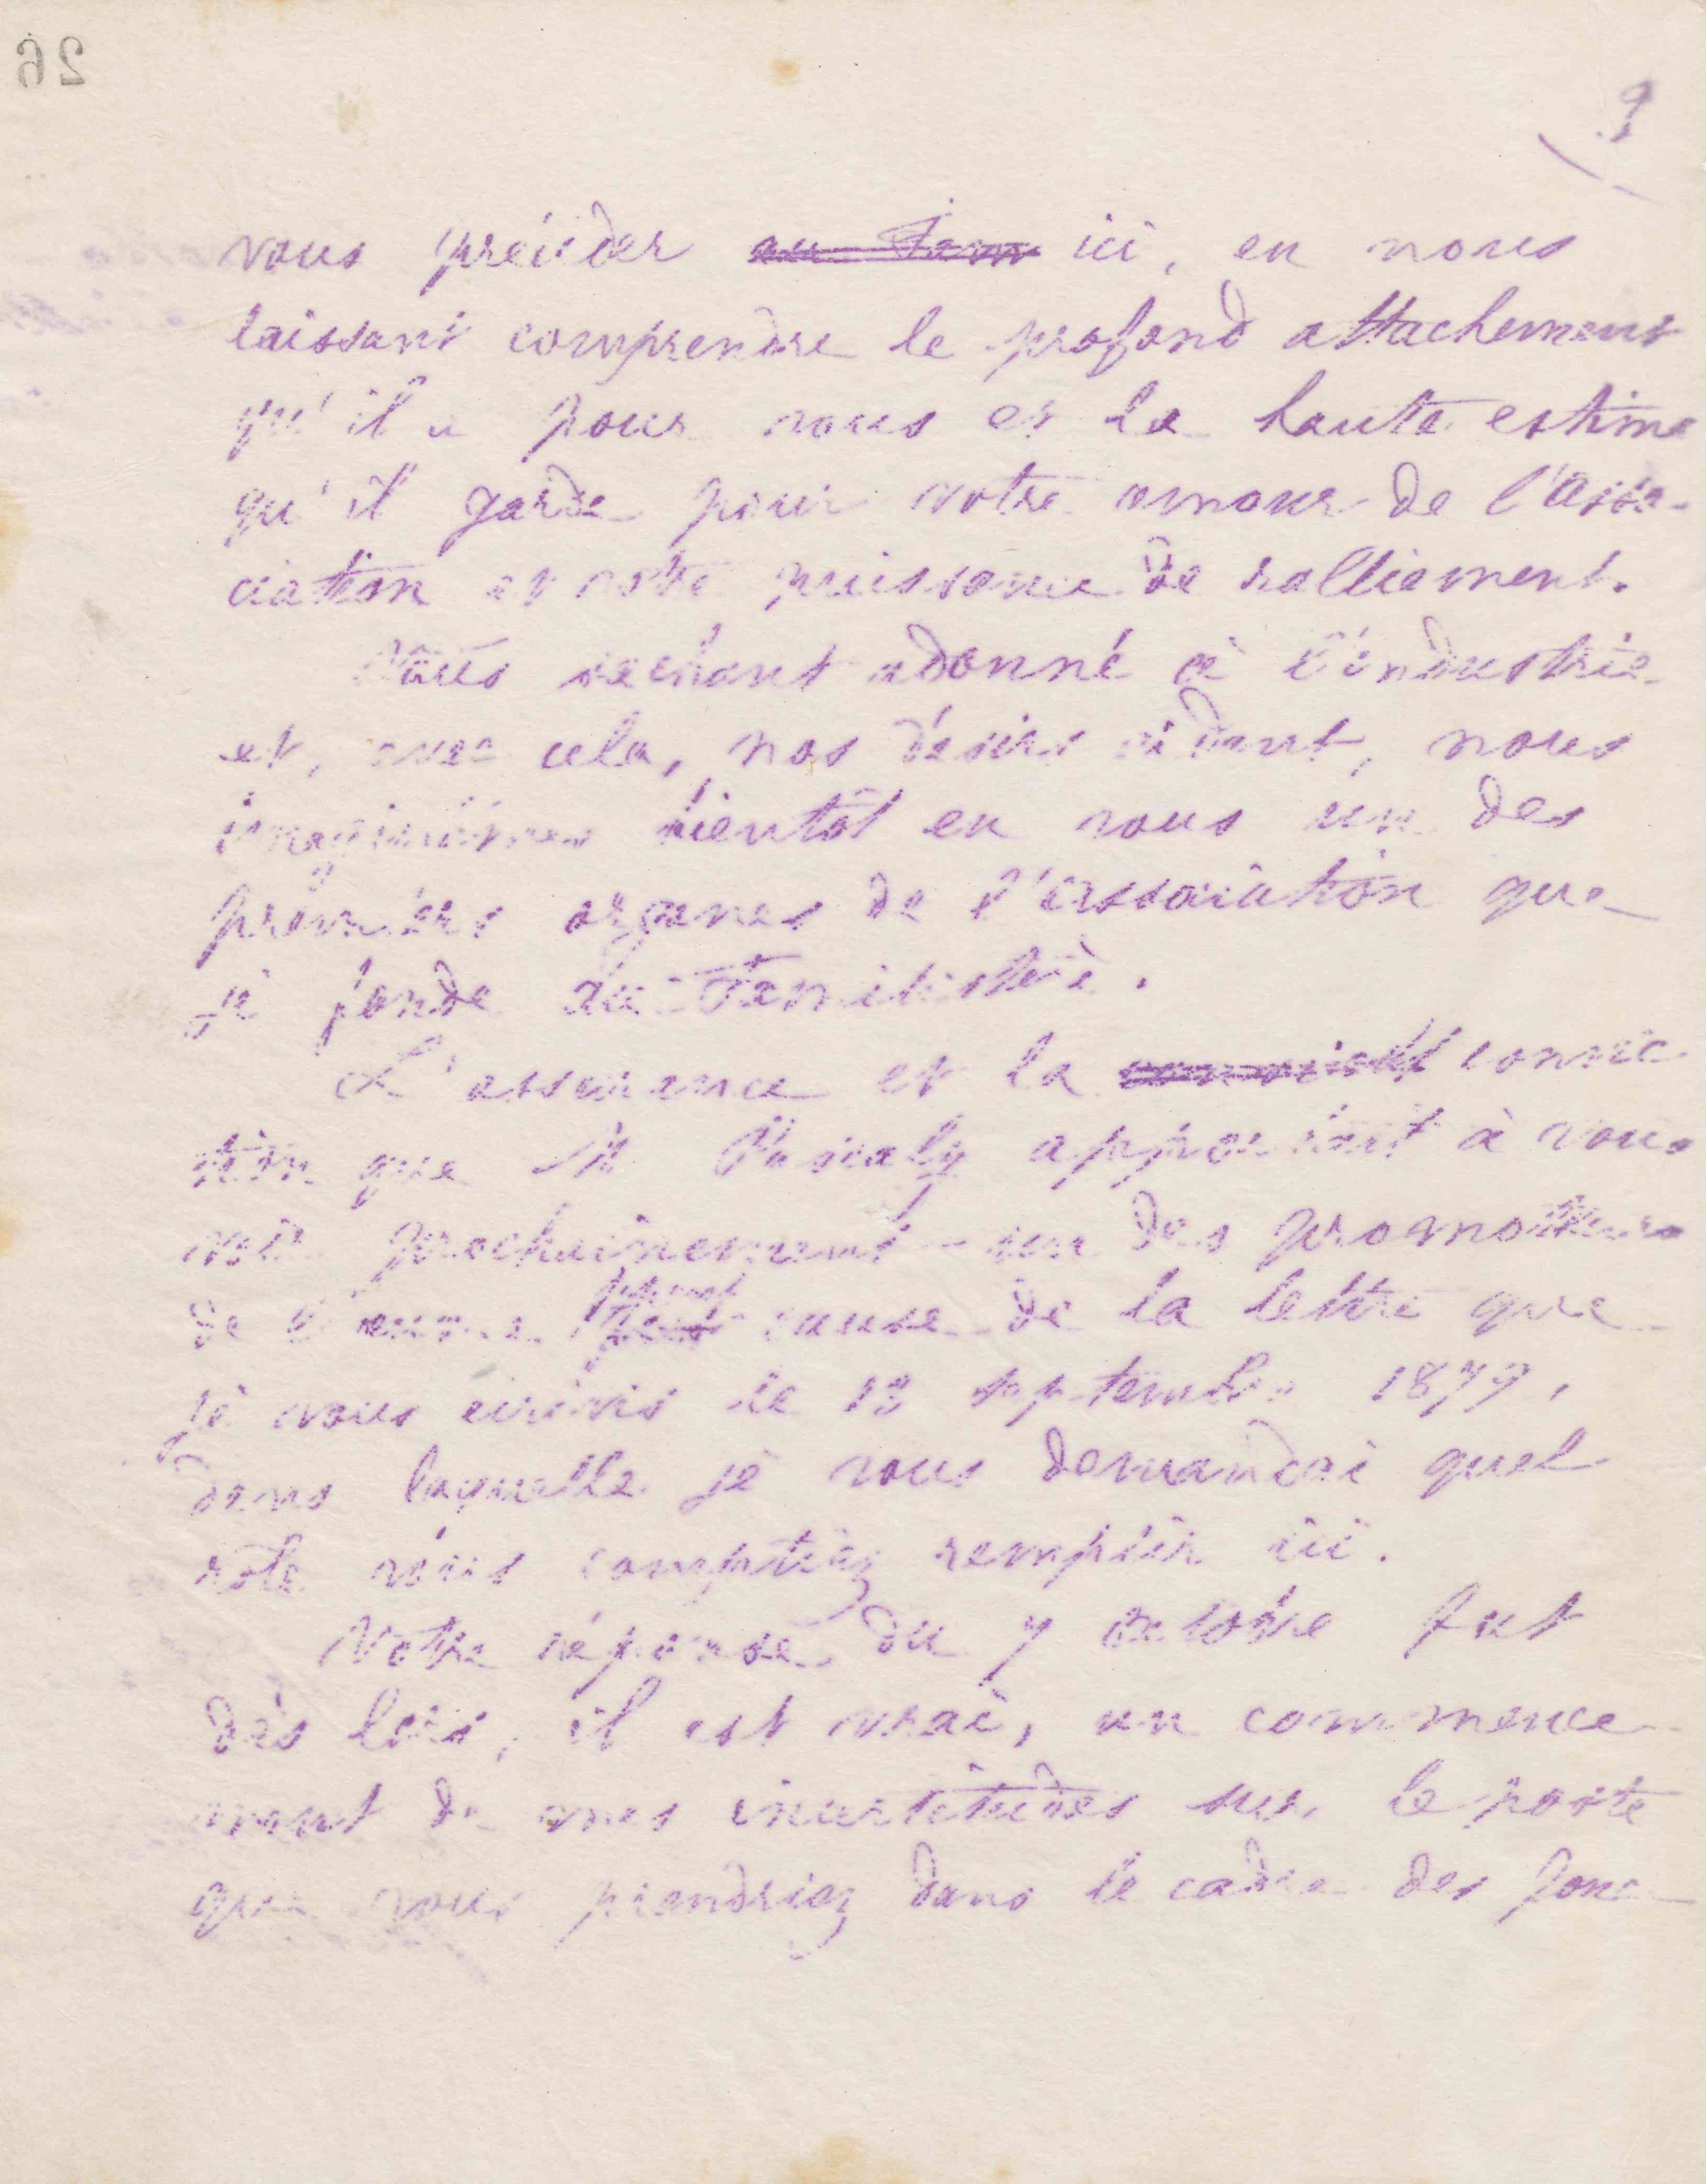 26
9
vous précéder au Fam ici, en nous
laissant comprendre le profond attachement
qu'il a pour vous et la haute estime
qu'il garde pour votre amour de l'asso-
ciation et votre puissance de ralliement.
Vous sachant adonné à l'industrie
et, avec cela, nos désirs aidant, nous
imaginâmes bientôt en vous un des
premiers organes de l'association que
je fonde au Familistère.
L'assurance et la convic
tion que M Pascaly apportait à vous
voir prochainement un des promoteurs
de l'œuvre cause de la lettre que
je vous écrivis le 13 septembre 1879,
dans laquelle je vous demandai quel
rôle vous comptiez remplir ici.
Votre réponse du 7 octobre fut
dès lors, il est vrai, un commence
ment de mes incertitudes sur le poste
que vous prendriez dans le cadre des fonc